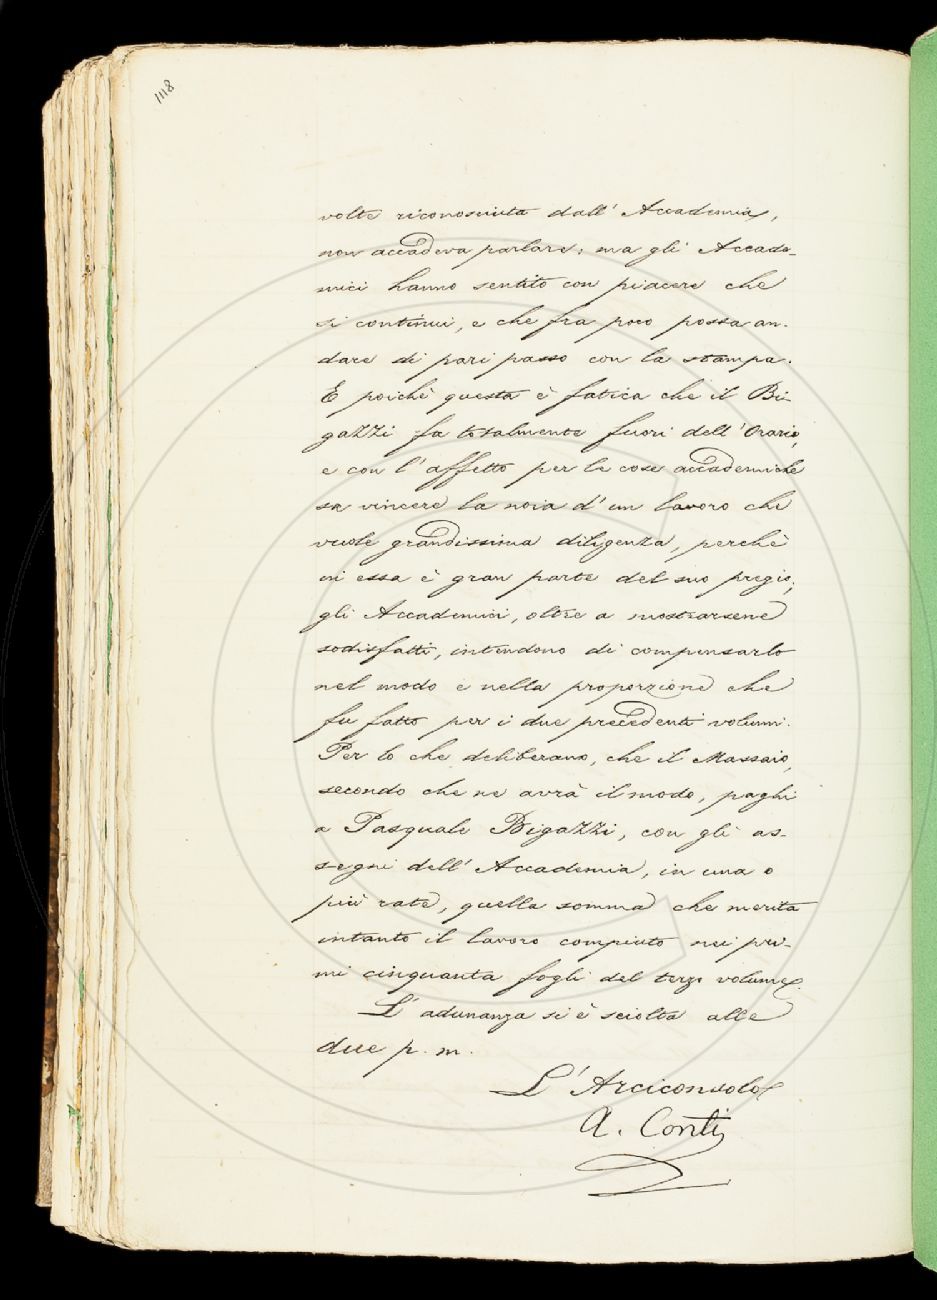 1118
volte riconosciuta dall'Accademia,
non accadeva parlare; ma gli Accade-
mici hanno sentito con piacere che
si continui, e che fra poco possa an-
dare di pari passo con la stampa.
E poichè questa è fatica che il Bi-
gazzi fa totalmente fuori dell'Orario,
e con l'affetto per le cose accademiche
sa vincere la noia d'un lavoro che
vuole grandissima diligenza, perchè
in essa è gran parte del suo pregio;
gli Accademici, oltre a mostrarsene
sodisfatti, intendono di compensarlo
nel modo e nella proporzione che
fu fatto per i due precedenti volumi.
Per lo che deliberano, che il Massaio,
secondo che ne avrà il modo, paghi
a Pasquale Bigazzi, con gli as-
segni dell'Accademia, in una o
più rate, quella somma che merita
intanto il lavoro compiuto nei pri-
mi cinquanta fogli del terzo volume.
L'adunanza si è sciolta alle
due p. m.
L'Arciconsolo
A. Conti